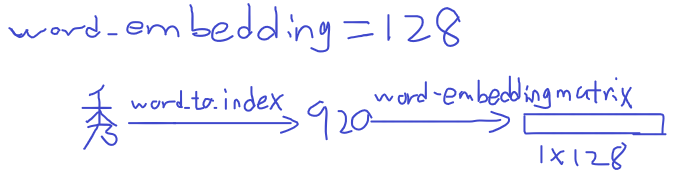 word_embedding=128
秀 word_to_index 920 word-embeddingmatrix
1x128